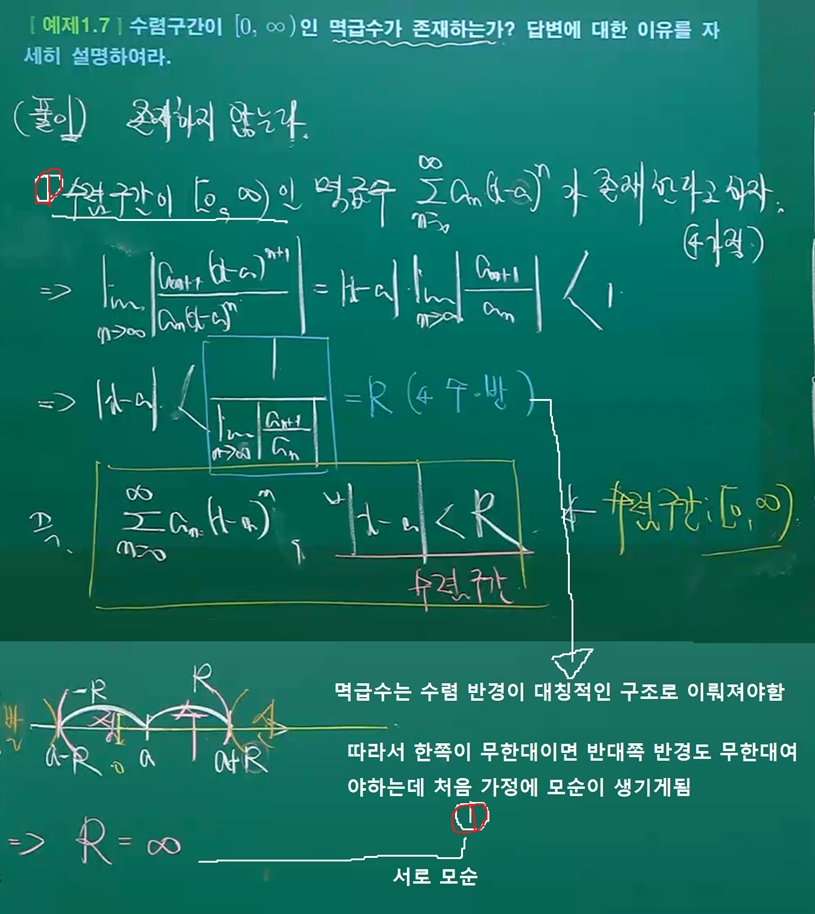 [ 예제1.7 ] 수렴구간이 [0, ∞)인 멱급수가 존재하는가? 답변에 대한 이유를 자
세히 설명하여라.
(풀이) 존재하지 않는다.
① 수렴구간이 [0, ∞)인 멱급수 ∑_{n=0}^{∞} aₙ(x-a)ⁿ 가 존재한다고 하자.
(수가정)
⇒ lim_{n→∞} |aₙ₊₁(x-a)ⁿ⁺¹ / aₙ(x-a)ⁿ| = |x-a| lim_{n→∞} |aₙ₊₁ / aₙ| < 1
⇒ |x-a| < 1 / lim_{n→∞} |aₙ₊₁ / aₙ| = R (수.반)
∑_{n=0}^{∞} aₙ(x-a)ⁿ, |x-a| < R ← 수렴구간: [0, ∞)
수렴구간
-R R
발 수
a-R 0 a a+R
멱급수는 수렴 반경이 대칭적인 구조로 이뤄져야함
따라서 한쪽이 무한대이면 반대쪽 반경도 무한대여
야하는데 처음 가정에 모순이 생기게됨
⇒ R = ∞ ①
서로 모순